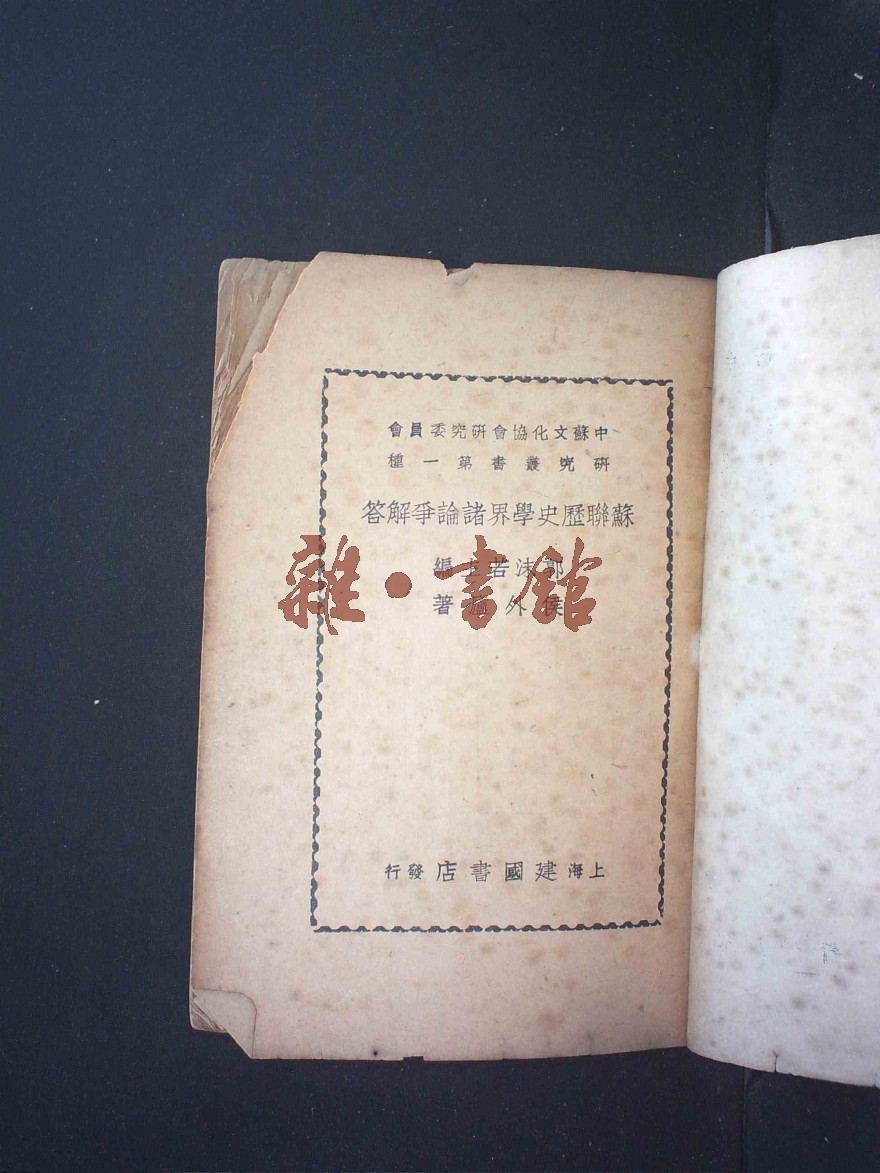 中蘇文化協會研究委員會
研究叢書第一種
蘇聯歷史學界諸論爭解答
郭沫若主編
侯外廬著
雜·書館
上海建國書店發行